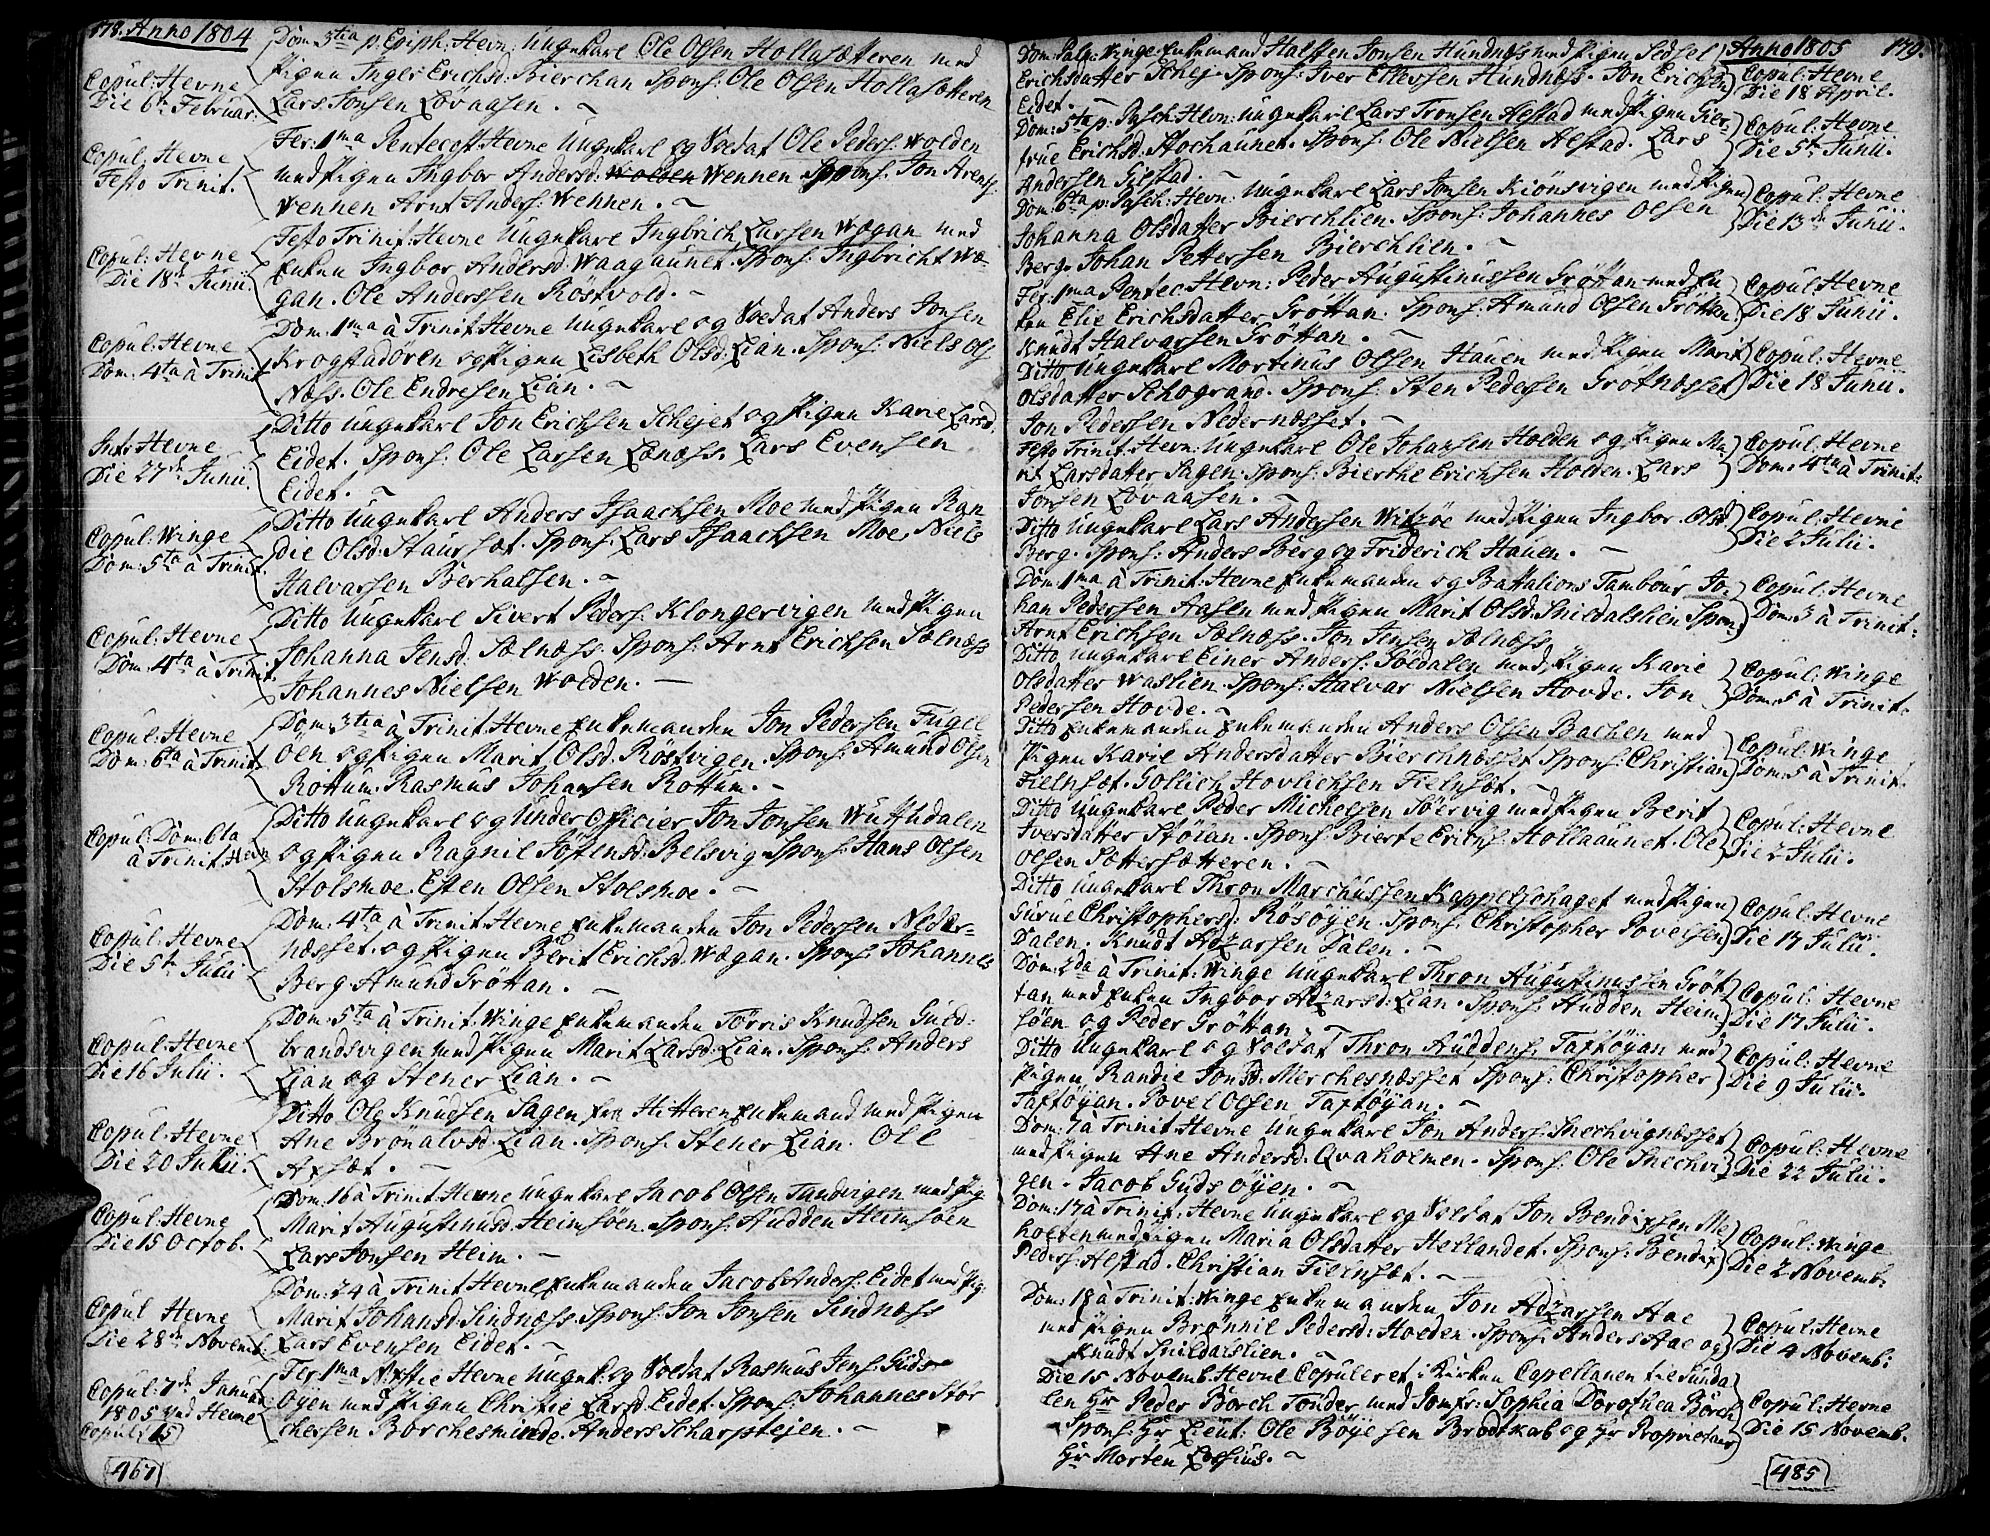 178. Anno 1804
Copul: Hevne
Die 6te Februar:
Dom: 3tia p. Epiph: Hevn: Ungekarl Ole Olsen Hollasætteren med
Pigen Inger Erichsd: Bierchan Spons: Ole Olsen Hollasætteren
Lars Jonsen Løvaasen. ~
Copul: Hevne
Festo Trinit.
Fer: 1ma Pentecost: Hevne Ungekarl og Soldat Ole Peders: Wolden
med Pigen Ingbor Andersd: Wennen Spons: Jon Arents:
Wennen Arnt Anders: Wennen. ~
Copul: Hevne
Die 18de Junii
Festo Trinit: Hevne Ungekarl Ingbrich Larsen Wogan med
Enken Ingbor Andersd: Waagaunet. Spons: Ingbricht Wo-
gan. Ole Anderssen Röstvold. ~
Copul: Hevne
Dom: 4ta à Trinit
Dom: 1ma à Trinit: Hevne Ungekarl og Soldat Anders Jonsen
Krogstadören og Pigen Lisbeth Olsd: Lian. Spons: Niels Ols
Næss. Ole Endresen Lian. ~
Hevne
Die 27de Junii
Ditto Ungekarl Jon Erichsen Schejet og Pigen Karie Larsd:
Eidet. Spons: Ole Larsen Lænæss. Lars Evensen
Eidet. ~
Copul: Winge
Dom: 5ta à Trinit.
Ditto Ungekarl Anders Isaachsen Moe med Pigen Ran
die Olsd: Staursæt. Spons: Lars Isaachsen Moe, Niels
Halvarsen Berhalsen. ~
Copul: Hevne
Dom: 4ta à Trinit.
Ditto Ungekarl Sivert Peders: Klongervigen med Pigen
Johanna Jensd: Sælnæss. Spons: Arnt Erichsen Sælnæss
Johannes Nielsen Wolden. ~
Copul: Hevne
Dom: 6ta à Trinit.
Dom: 3tia à Trinit. Hevne Enkemanden Jon Pedersen Fugel-
öen og Pigen Marit Olsd: Röstvigen. Spons: Amund Olsen
Rottum. Rasmus Johansen Rottum. ~
Copul: Dom: 6ta
à Trinit. Hevn
Ditto Ungekarl og Under Officier Jon Jonsen Wuthudalen
og Pigen Ragnil Jöstensd: Belsvig. Spons: Hans Olsen
Stolsmoe. Esten Olsen Stolsmoe. ~
Copul: Hevne
Die 5te Julii
Dom: 4ta à Trinit. Hevne Enkemanden Jon Pedersen Neder-
næsset og Pigen Berit Erichsd: Wægan. Spons: Johannes
Berg. Amund Gröttan. ~
Copul: Hevne
Die 16 Julii.
Dom: 5ta à Trinit. Winge Enkemanden Törris Knudsen Guld-
brandsvigen med Pigen Marit Larsd: Lian. Spons: Anders
Lian og Stener Lian. ~
Copul: Hevne
Die 20 Julii.
Ditto Ole Knudsen Sagen fra Hitteren Enkemand med Pigen
Ane Brönalvsd: Lian. Spons: Stener Lian. Ole
Axsæt. ~
Copul: Hevne
Die 15 Octob.
Dom: 16 à Trinit. Hevne Ungekarl Jacob Olsen Tandvigen med Pig:
Marit Augustinusd: Heimsöen. Spons: Audden Heimsöen
Lars Jonsen Heim. ~
Copul Hevne
Die 28de Novemb.
Dom: 24 à Trinit Hevne Enkemanden Jacob Anders: Eidet med Pig:
Marit Johansd: Sindnæss. Spons: Jon Jonsen Sindnæss
Lars Evensen Eidet. ~
Copul: 7de Januar
1805 ved Hevne
Copul: 15
Fer: 1ma Nattie Hevne Ungek: og Soldat Rasmus Jens: Guds-
öyen med Pigen Christie Larsd: Eidet. Spons: Johannes Stör
chersen Borchesminde. Anders Scharpstejen. ~
467
Anno 1805 179.
Dom: Palm: Winge Enkemand Halsten Jonsen Hundnæss med Pigen Sedsel
Erichsdatter Schej. Spons: Iver Ellevssen Hundnæss. Jon Erichsen
Eidet. ~
Copul: Hevne
Die 18 April.
Dom: 5ta p: Pasch: Hevn: Ungekarl Lars Tronsen Alstad med Pigen Gier-
true Erichsd: Stochaunet. Spons: Ole Nielsen Alstad. Lars
Andersen Gilstad. ~
Copul: Hevne
Die 5te Junii.
Dom: 6ta p: Pasch: Hevn: Ungekarl Lars Jonsen Kiönsvigen med Pigen
Johanna Olsdatter Bierchlien. Spons: Johannes Olsen
Berg. Johan Pettersen Bierchlien. ~
Copul: Hevne
Die 13de Junii.
Fer: 1ma Pentec: Hevn: Peder Augustinussen Gröttan med En
ken Elie Erichsdatter Gröttan. Spons: Amund Olsen Gröttan
Knudt Halvarsen Gröttan. ~
Copul: Hevne
Die 18 Junii.
Ditto Ungekarl Mortinus Olsen Hauen med Pigen Marit
Olsdatter Schogrand. Spons: Sten Pedersen Grötnæsset
Jon Pedersen Nedernæsset. ~
Copul: Hevne
Die 18 Junii.
Festo Trinit. Hevn: Ungekarl Ole Johansen Holden og Pigen Ma
rit Larsdatter Sagen. Spons: Bierthe Erichsen Holden. Lars
Jonsen Løvaasen. ~
Copul: Hevne
Dom: 4ta à Trinit:
Ditto Ungekarl Lars Andersen Witzöe med Pigen Ingbor Olsd
Berg. Spons: Anders Berg og Friderich Hauen. ~
Copul: Hevne
Die 2 Julii.
Dom: 1ma à Trinit: Hevne Enkemanden og Battalions Tambour Jo-
han Pedersen Aasen med Pigen Marit Olsd: Snildalslien Spons
Arnt Erichsen Sælnæss. Jon Jensen Sælnæss
Copul: Hevne
Dom: 3 à Trinit:
Ditto Ungekarl Einer Anders: Göldalen med Pigen Karie
Olsdatter Waslien. Spons: Halvar Nielsen Hovde. Jon
Pedersen Hovde. ~
Copul: Winge
Dom: 5 à Trinit.
Ditto Enkemanden Enkemanden Anders Olsen Bachen med
Pigen Karie Andersdatter Bierchnæsset Spons: Christian
Fielnsæt. Gollich Hovlichsen Fielnsæt. ~
Copul: Winge
Dom: 5 à Trinit.
Ditto Ungekarl Peder Michelsen Söervig med Pigen Berit
Iversdatter Stölan. Spons: Bierte Erichs: Hollaaunet. Ole
Olsen Sættersætteren. ~
Copul: Hevne
Die 2 Julii.
Ditto Ungekarl Thron Marchussen Kappelschaget med Pigen
Gurue Christophersd: Rösöyen. Spons: Christopher Povelsen
Dalen. Knudt Adzarsen Dalen. ~
Copul: Hevne
Die 17 Julii.
Dom: 2da à Trinit: Winge Ungekarl Thron Augustinussen Gröt
tan med Enken Ingbor Adzarsd: Lian. Spons: Audden Heim
söen og Peder Gröttan ~
Copul: Hevne
Die 17 Julii.
Ditto Ungekarl og Soldat Thron Auddens: Taftöyan med
Pigen Randie Jonsd: Merchesnæsset Spons: Christopher
Taftöyan. Povel Olsen Taftöyan. ~
Copul: Hevne
Die 9 Julii.
Dom: 7 à Trinit: Hevne Ungekarl Jon Anders: Snechvignæsset
med Pigen Ane Andersd: Qvaholmen. Spons: Ole Snechvi
gen. Jacob Gudsöyen. ~
Copul: Hevne
Die 22 Julii.
Dom: 17 à Trinit: Hevne Ungekarl og Soldat Jon Bendixsen Me
holten med Pigen Maria Olsdatter Hellandet. Spons: Bendix
Peders: Alstad. Christian Fielnsæt. ~
Copul: Winge
Die 2 Novemb.
Dom: 18 à Trinit: Winge Enkemanden Jon Adzarsen Aae
med Pigen Brönnil Pedersd: Holden. Spons: Anders Aae og
Knudt Snildalslien. ~
Copul: Hevne
Die 4 Novemb:
Die 15 Novemb. Hevne Copuleret i Kirken Capellanen til Sunda
len Hr Peder Börch Tönder med Jomfr: Sophia Dorothea Börch
Spons: Hr Lieut: Ole Böyesen Brodtkorb og Hr Proprietair
Hr Morten Lossius. ~
Copul: Hevne
Die 15 Novemb.
485